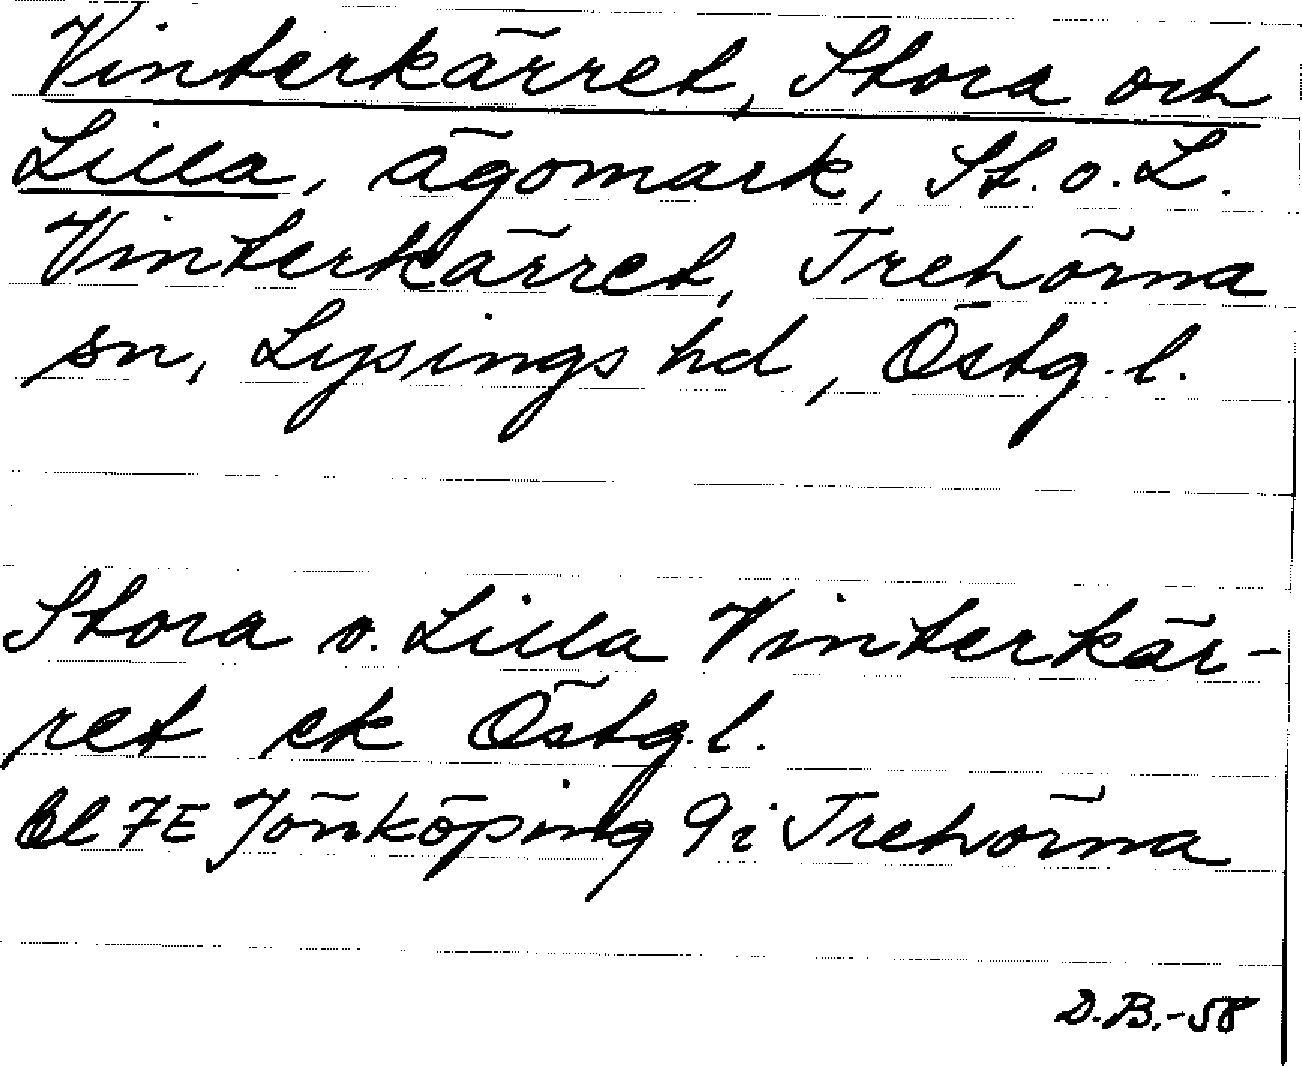 Vinterkärret, Stora och
Lilla, ägomark, St. o. L.
Vinterkärret, Trehörna
sn, Lysings hd, Östg. l.
Stora o. Lilla Vinterkär-
ret ek Östg. l.
bl 7E Jönköping 9i Trehörna
D.B.-58